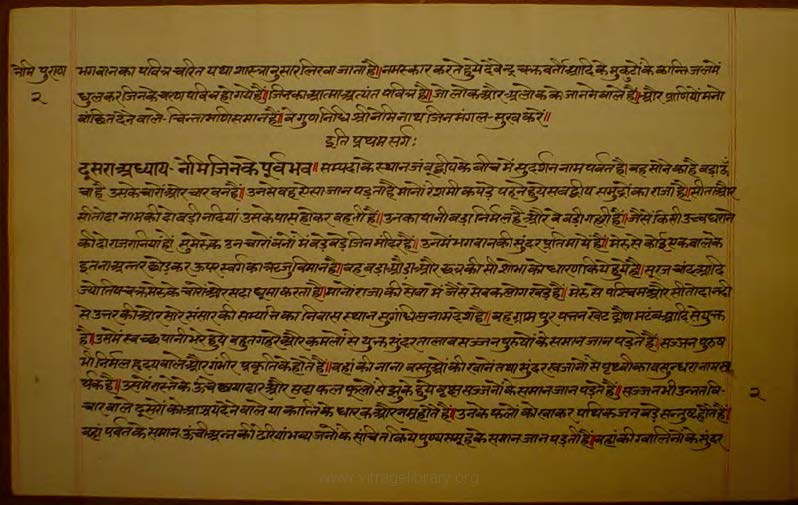 नेमि पुराण
२
भगवान का पवित्र चरित यथा शास्त्रानुसार लिखा जाता है॥ नमस्कार करते हुये देवेन्द्र चक्रवर्ती आदि के मुकुटों के कान्ति जल में
धुलकर जिनके चरण पवित्र हो गये हैं॥ जिनका आत्मा अत्यंत पवित्र है॥ जो लोक और अलोक के जानने वाले हैं॥ और प्राणियों मनो
वांछित देने वाले चिन्तामणि समान हैं॥ वे गुण निधि श्री नेमिनाथ जिन मंगल-सुख करें॥
इति प्रथम सर्गः
दूसरा अध्याय - नेमिजिन के पूर्व भव॥ सम्पदा के स्थान जंबू द्वीप के बीच में सुदर्शन नाम पर्वत है॥ वह सोने का है बड़ा ऊँ
चा है उसके चारों और चार वन हैं॥ उनसे वह ऐसा जान पड़ता है मानों रेशमी कपड़े पहने हुये सब द्वीप समुद्रों का राजा है॥ सीता और
सीतोदा नाम की दो बड़ी नदियां उसके पास होकर बहती हैं॥ उनका पानी बड़ा निर्मल है और वे बड़ी गहरी हैं॥ जैसे किसी उच्च घराने
की दो राजरानियां हों सुमेरु के उन चारों वनों में बड़े बड़े जिन मंदिर हैं॥ उनमें भगवान की सुंदर प्रतिमायें हैं॥ मेरु से कोई एक बाल के
इतना अन्तर छोड़कर ऊपर स्वर्ग का ऋजु विमान है॥ वह बड़ा चौड़ा और छत्र की सी शोभा को धारण किये हुये है॥ सूरज चांद आदि
ज्योतिष चक्र मेरु के चारों और सदा घूमा करता है॥ मानो राजा की सेवा में जैसे सेवक लोग खड़े हैं॥ मेरु से पश्चिम और सीतोदा नदी
से उत्तर की और सारे संसार की सम्पत्ति का निवास स्थान सुगंधिल नाम देश है॥ वह ग्राम पुर पत्तन खेट द्रोण मटंब आदि से युक्त
है॥ उसमें स्वच्छ पानी भरे हुये बहुत गहरे और कमलों से युक्त सुंदर तालाब सज्जन पुरुषों के समान जान पड़ते हैं॥ सज्जन पुरुष
भी निर्मल हृदय वाले और गंभीर प्रकृति के होते हैं॥ वहां की नाना वस्तुओं की खानें तथा सुंदर खजानों से पृथ्वी का वसुन्धरा नाम सा
र्थक है॥ उसमें रास्ते के ऊंचे छायादार और सदा फल फूलों से झुके हुये वृक्ष सज्जनों के समान जान पड़ते हैं॥ सज्जन भी उन्नत वि-
चार वाले दूसरों को आश्रय देने वाले या कान्ति के धारक और नम्र होते हैं॥ उनके फलों को खाकर पथिक जन बड़े सन्तुष्ट होते हैं॥
वहां पर्वत के समान ऊंची अन्न की ढेरियां भव्य जनों के संचित किये पुण्य समूह के समान जान पड़ती हैं॥ वहां की ग्वालिनों के सुंदर
२
www.vitragelibrary.org